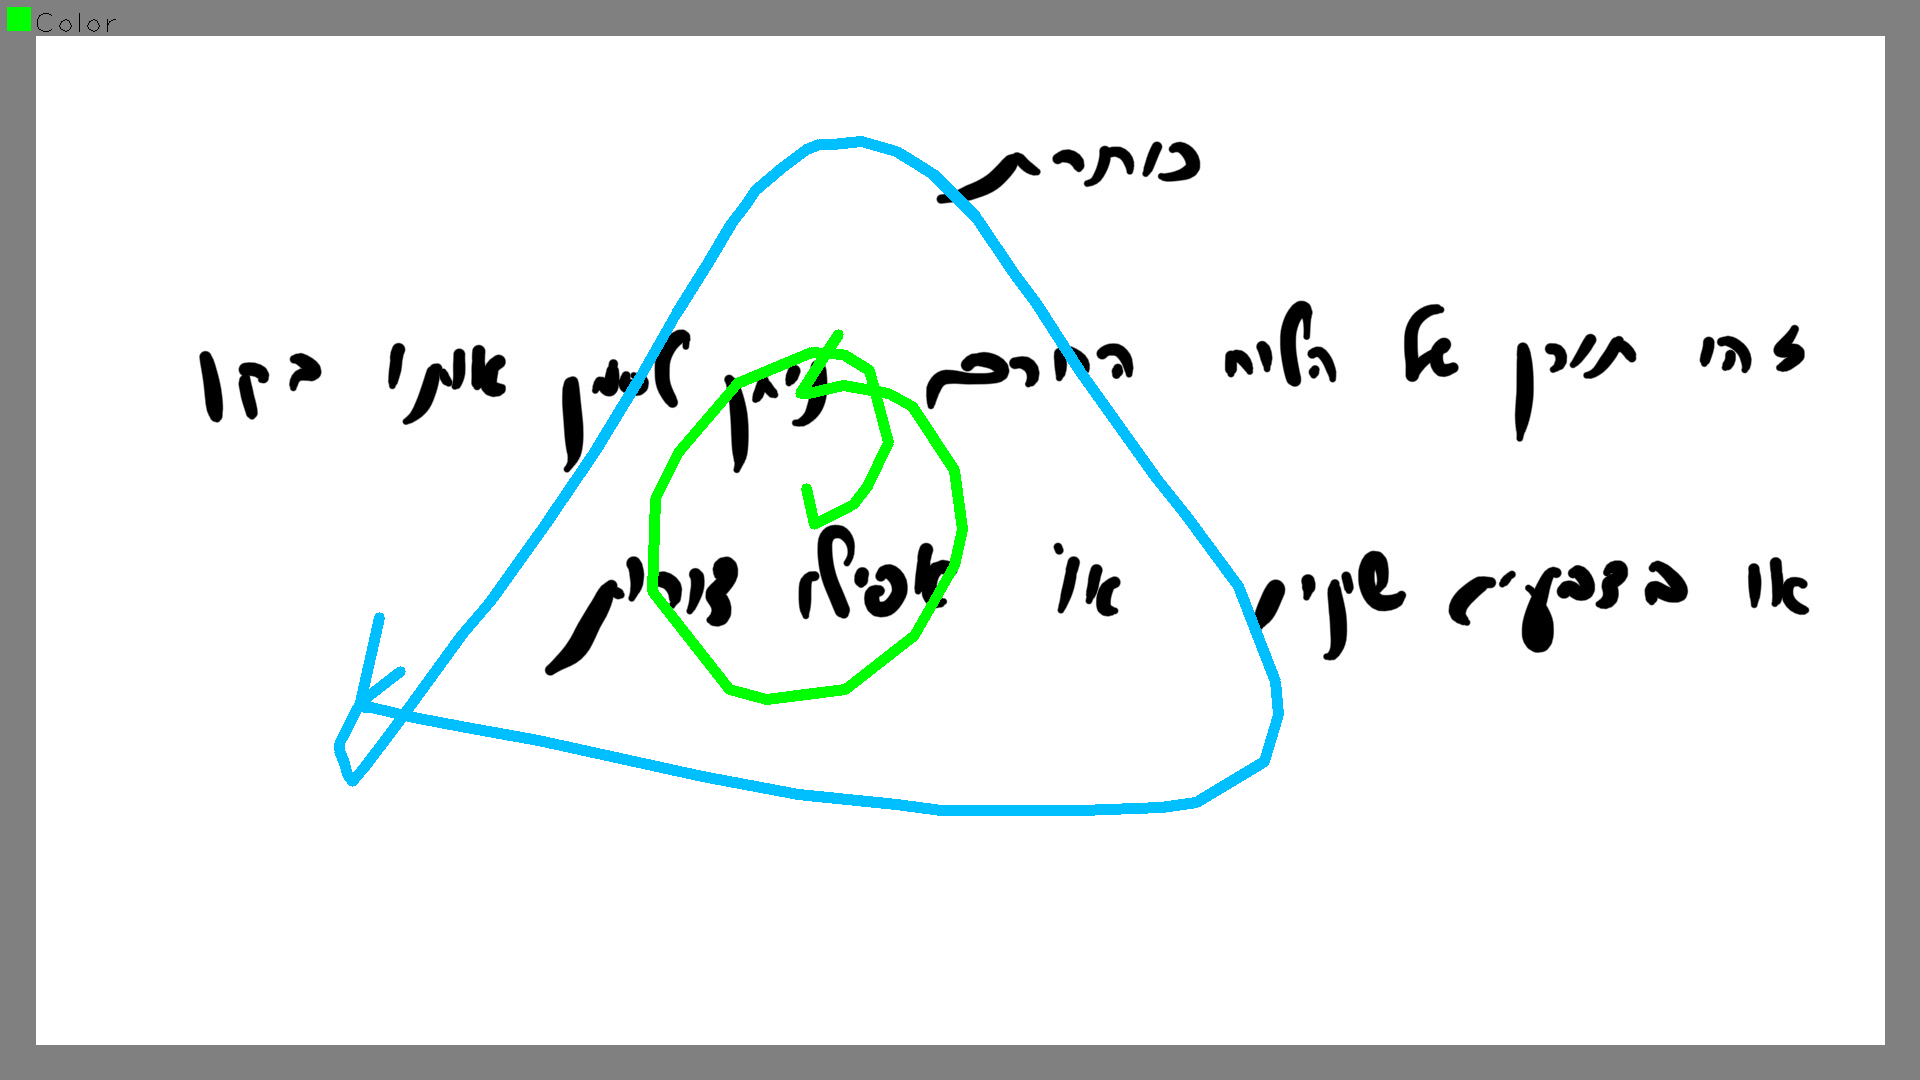 Color
כותרת
זהו תוכן על הלוח הורם ניתן לסמן אותו בקו
או בצבעים שונים או אפילו צורות